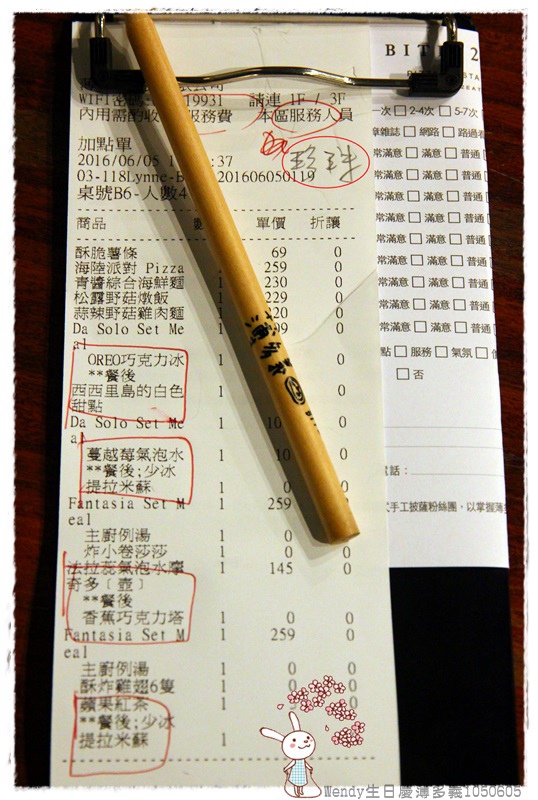 WIFI密碼 19931 請連 1F / 3F
內用需酌收 服務費 本區服務人員
加點單
珍珠
2016/06/05 1 :37
03-118Lynne-B 201606050119
桌號B6-人數4
商品 單價 折讓
酥脆薯條 69 0
海陸派對 Pizza 259 0
青醬綜合海鮮麵 1 230 0
松露野菇燉飯 1 229 0
蒜辣野菇雞肉麵 1 220 0
Da Solo Set Me 1 99 0
al
OREO巧克力冰
**餐後
西西里島的白色 0
甜點
Da Solo Set Me 1 10 0
al
蔓越莓氣泡水 1 10 0
**餐後;少冰
提拉米蘇 1 0 0
Fantasia Set M 1 259
eal
主廚例湯 1 0 0
炸小卷莎莎 1 0 0
法拉蕊氣泡水摩 1 145 0
奇多﹝壺﹞
**餐後
香蕉巧克力塔 1 0 0
Fantasia Set M 1 259 0
eal
主廚例湯 1 0 0
酥炸雞翅6隻 1 0 0
蘋果紅茶 1 0
**餐後;少冰
提拉米蘇 1
薄多義
BIT 2
一次 □ 2-4次 □ 5-7次
雜誌 □ 網路 □ 路過
常滿意 □ 滿意 □ 普通
常滿意 □ 滿意 □ 普通
常滿意 □ 滿意 □ 普通
常滿意 □ 滿意 □ 普通
常滿意 □ 滿意 □ 普通
常滿意 □ 滿意 □ 普通
常滿意 □ 滿意 □ 普通
常滿意 □ 滿意 □ 普通
常滿意 □ 滿意 □ 普通
點 □ 服務 □ 氣氛 □
□ 否
電話:
手工披薩粉絲團,以掌握薄
Wendy生日慶薄多義1050605